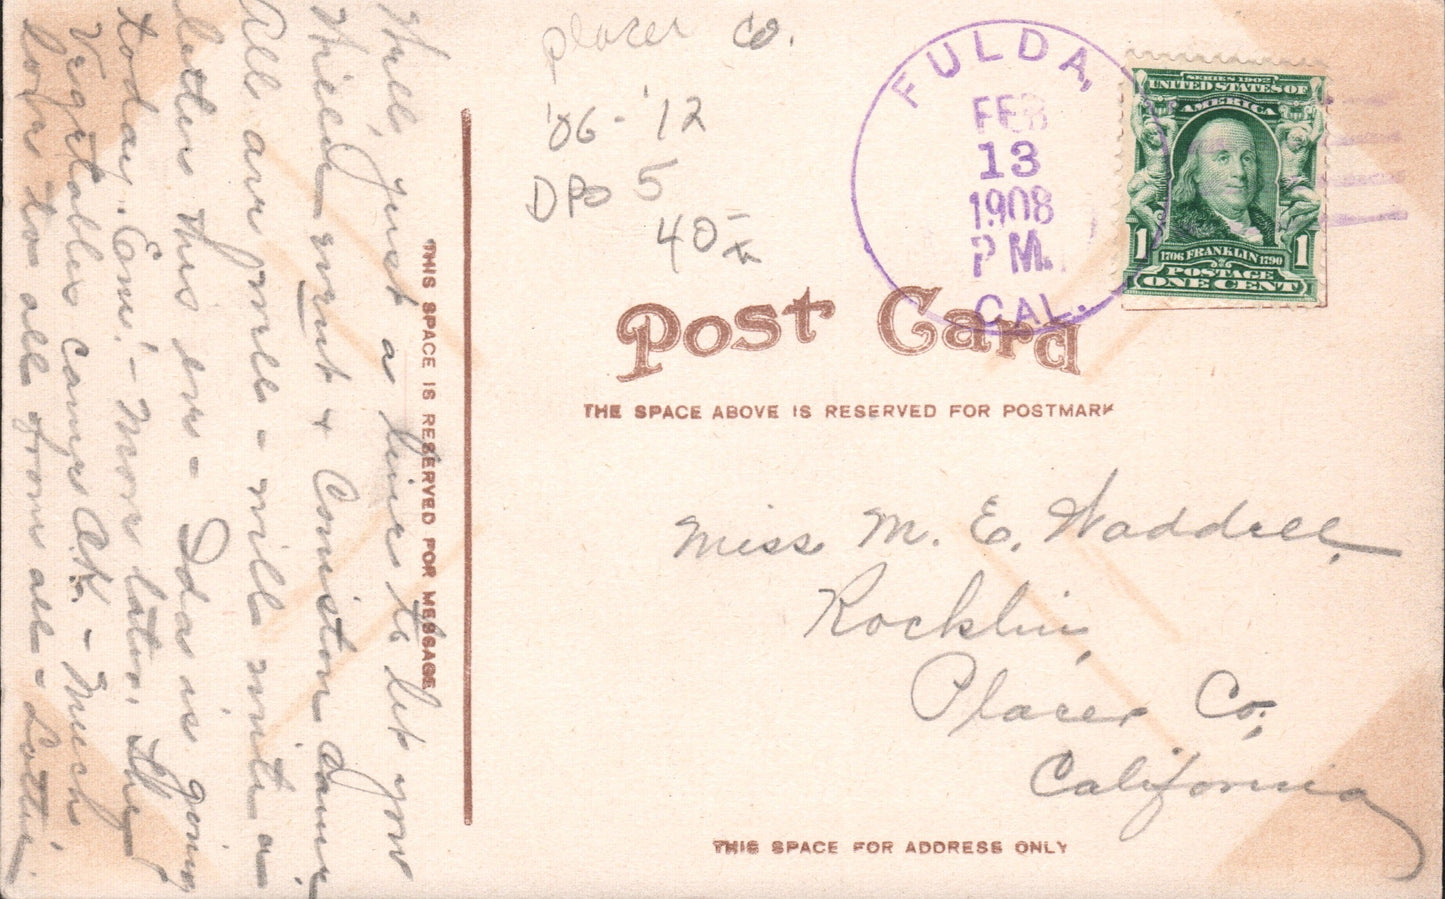 Placer Co.
'06 - '12
DPO 5
40-
FULDA,
FEB
13
1908
P M.
CAL.
SERIES 1902
UNITED STATES OF
AMERICA
1 1706 FRANKLIN 1790 1
POSTAGE
ONE CENT
Post Card
THE SPACE ABOVE IS RESERVED FOR POSTMARK
Miss M. E. Waddell,
Rocklin,
Placer Co.,
California
THIS SPACE FOR ADDRESS ONLY
THIS SPACE IS RESERVED FOR MESSAGE
Well, just a line to let you
+
All are well - will write a
letter this eve - Ida is going
today. - More later. The
Vegetables came O.K. - Much
love to all from all - Lottie